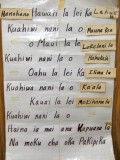 Nanohano Hawaii la lei ka Lehua
Kuahiwi nani la o Mauna Kea
o Maui la le Lokelani la
Kuahiwi nani la o Haleakala
Oahu la lei ka Ilima la
Kuahiwi nani la o Kaala
Kauai la lei Mokihana la
Kuahiwi nani la o
Haina ia mai ana Kapuana la
Na moku oka oka Pakipika